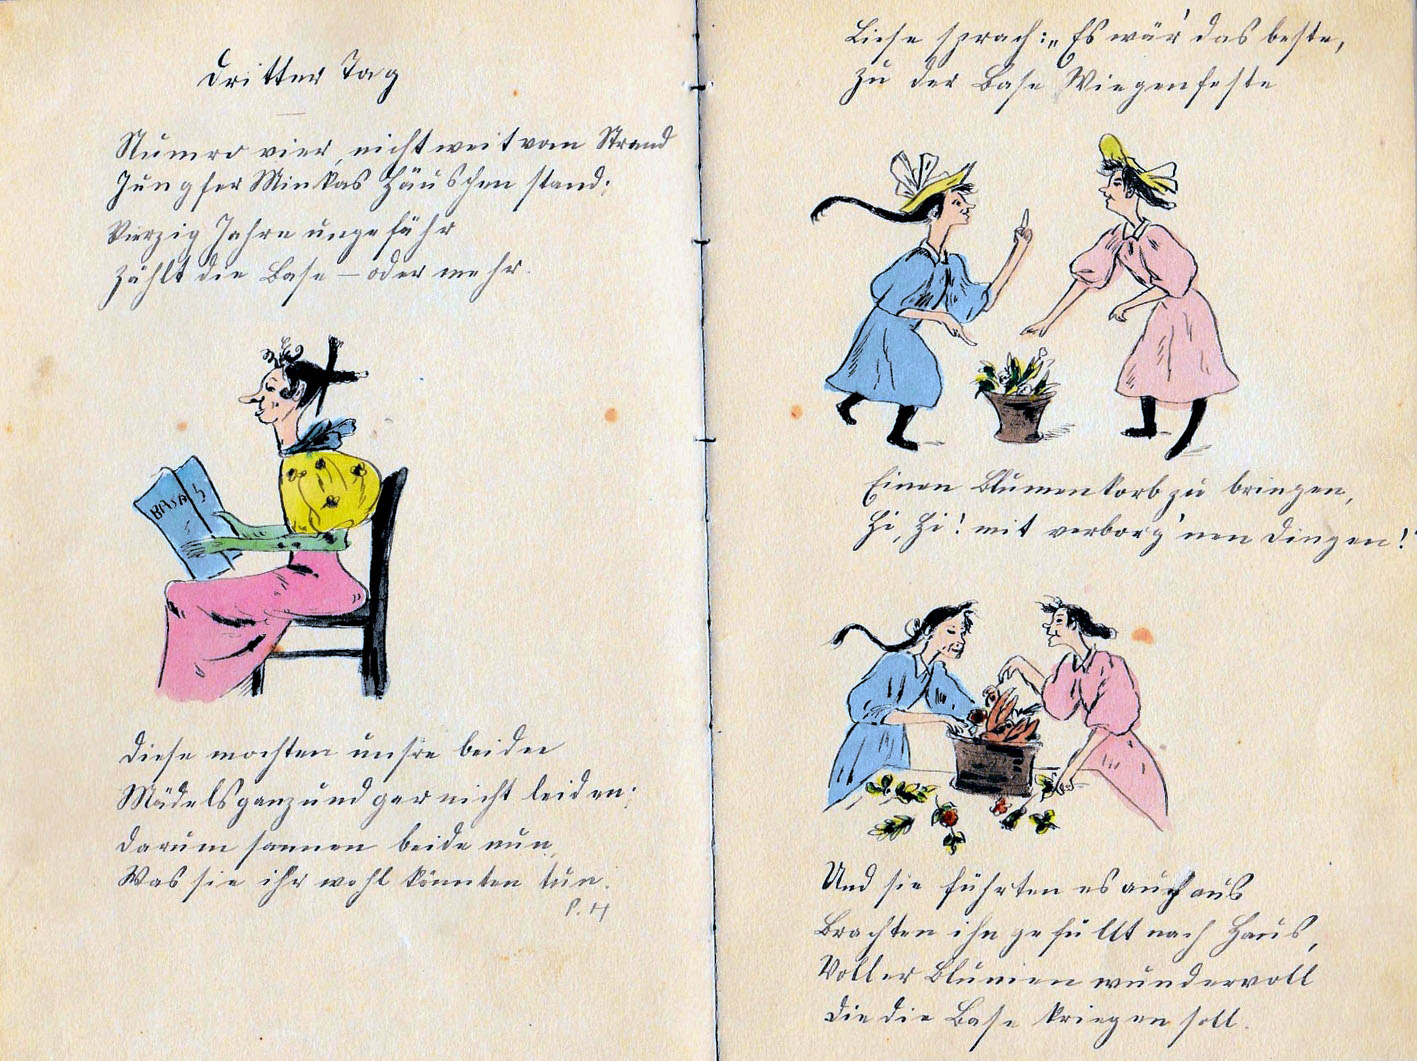 Dritter Tag
Numro vier, nicht weit vom Strand
Jungfer Minkas Häuschen stand;
Vierzig Jahre ungefähr
Zählt die Base – oder mehr.
BASAR
Diese mochten unsre beiden
Mädels ganz und gar nicht leiden;
Darum sannen beide nun,
Was sie ihr wohl könnten tun.
P. H
Liese sprach: „Es wär' das beste,
Zu der Base Wiegenfeste
Einen Blumenkorb zu bringen,
Hi, Hi! mit verborg'nen Dingen!"
Und sie führten es auch aus
Brachten ihn gefüllt nach Haus,
Voller Blumen wundervoll
Die die Base kriegen soll.